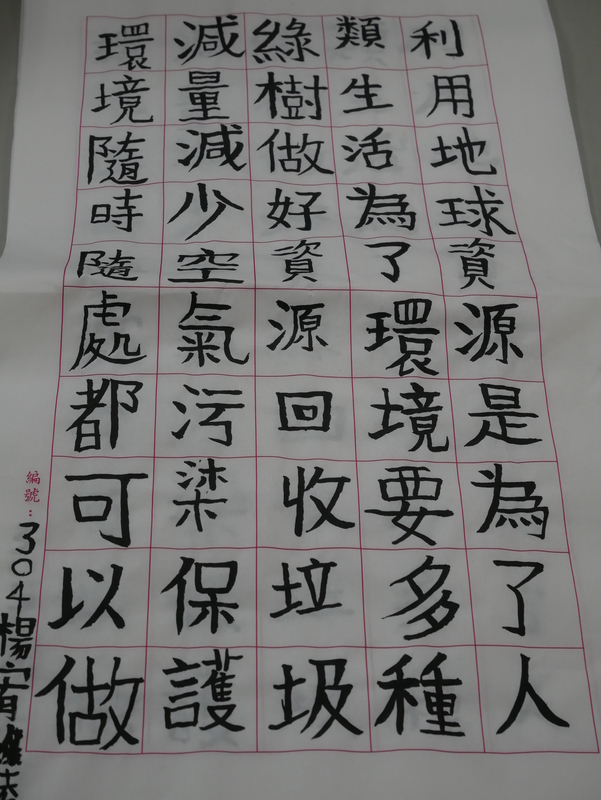 利用地球資源是為了人
類生活為了環境要多種
綠樹做好資源回收垃圾
減量減少空氣污染保護
環境隨時隨處都可以做
編號：304楊宥